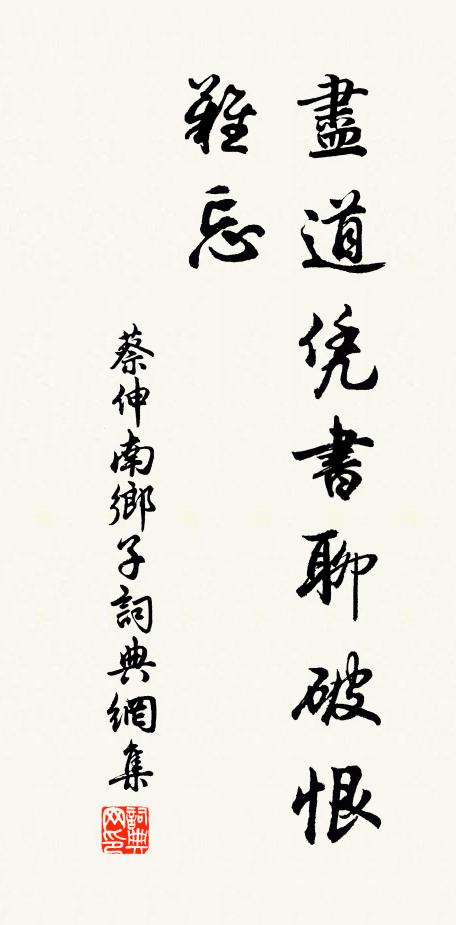 盡道凭書聊破恨
難忘
蔡伸南鄉子詞典網集
詞典网印